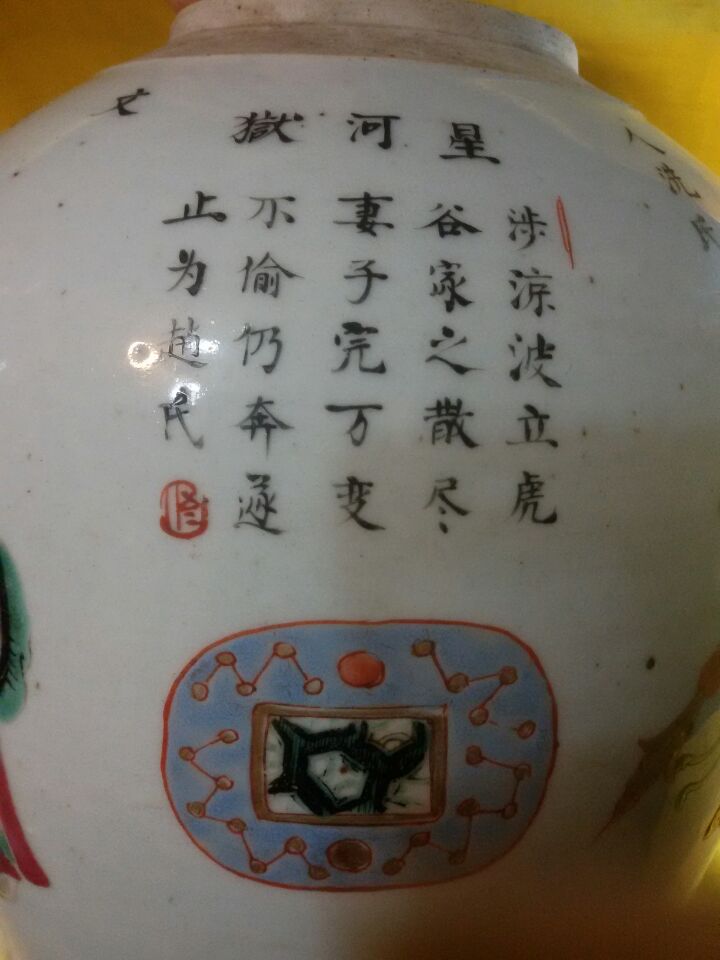 人洗氏
星河獄
涉涼波立虎
谷家之散尽
妻子完万变
不偷仍奔遂
止为趙氏